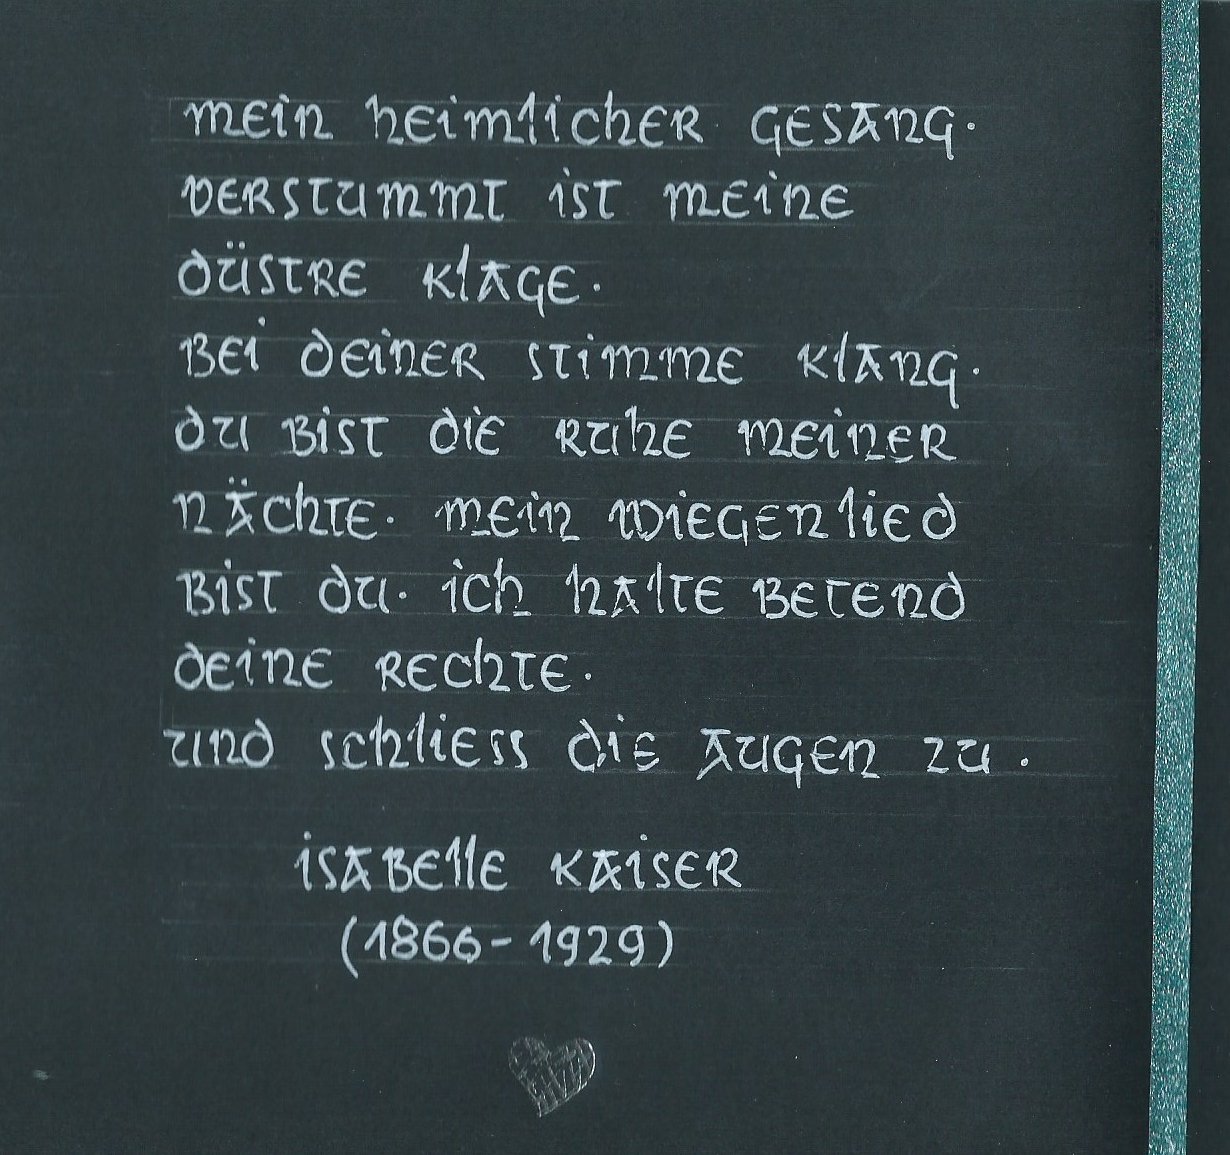 mein heimlicher Gesang.
verstummt ist meine
düstre Klage.
Bei deiner Stimme Klang.
du bist die Ruhe meiner
Nächte. mein Wiegenlied
bist du. ich halte betend
deine Rechte.
und schliess die Augen zu.
Isabelle Kaiser
(1866-1929)